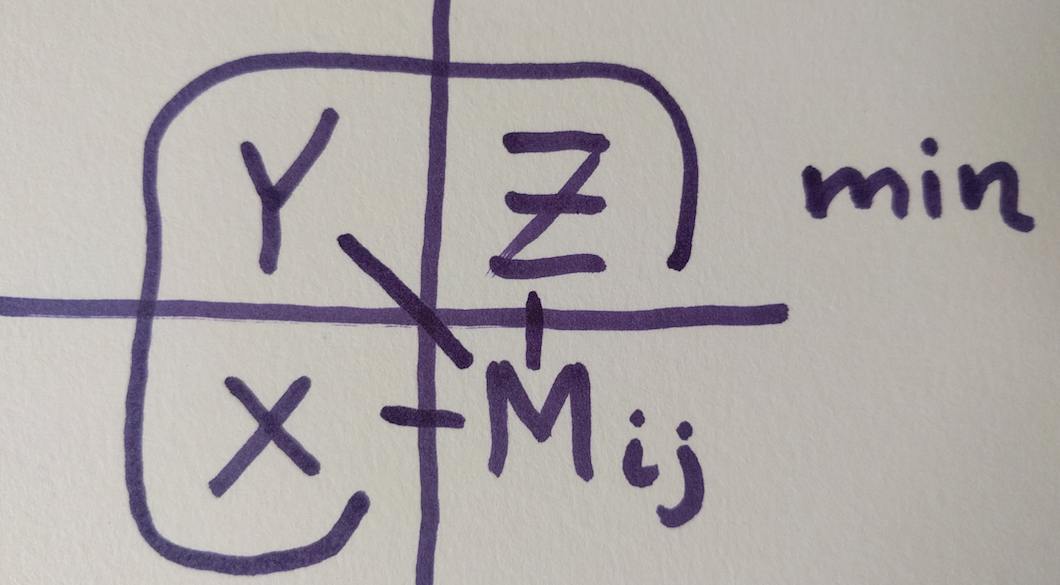 Y Z min
X M ij